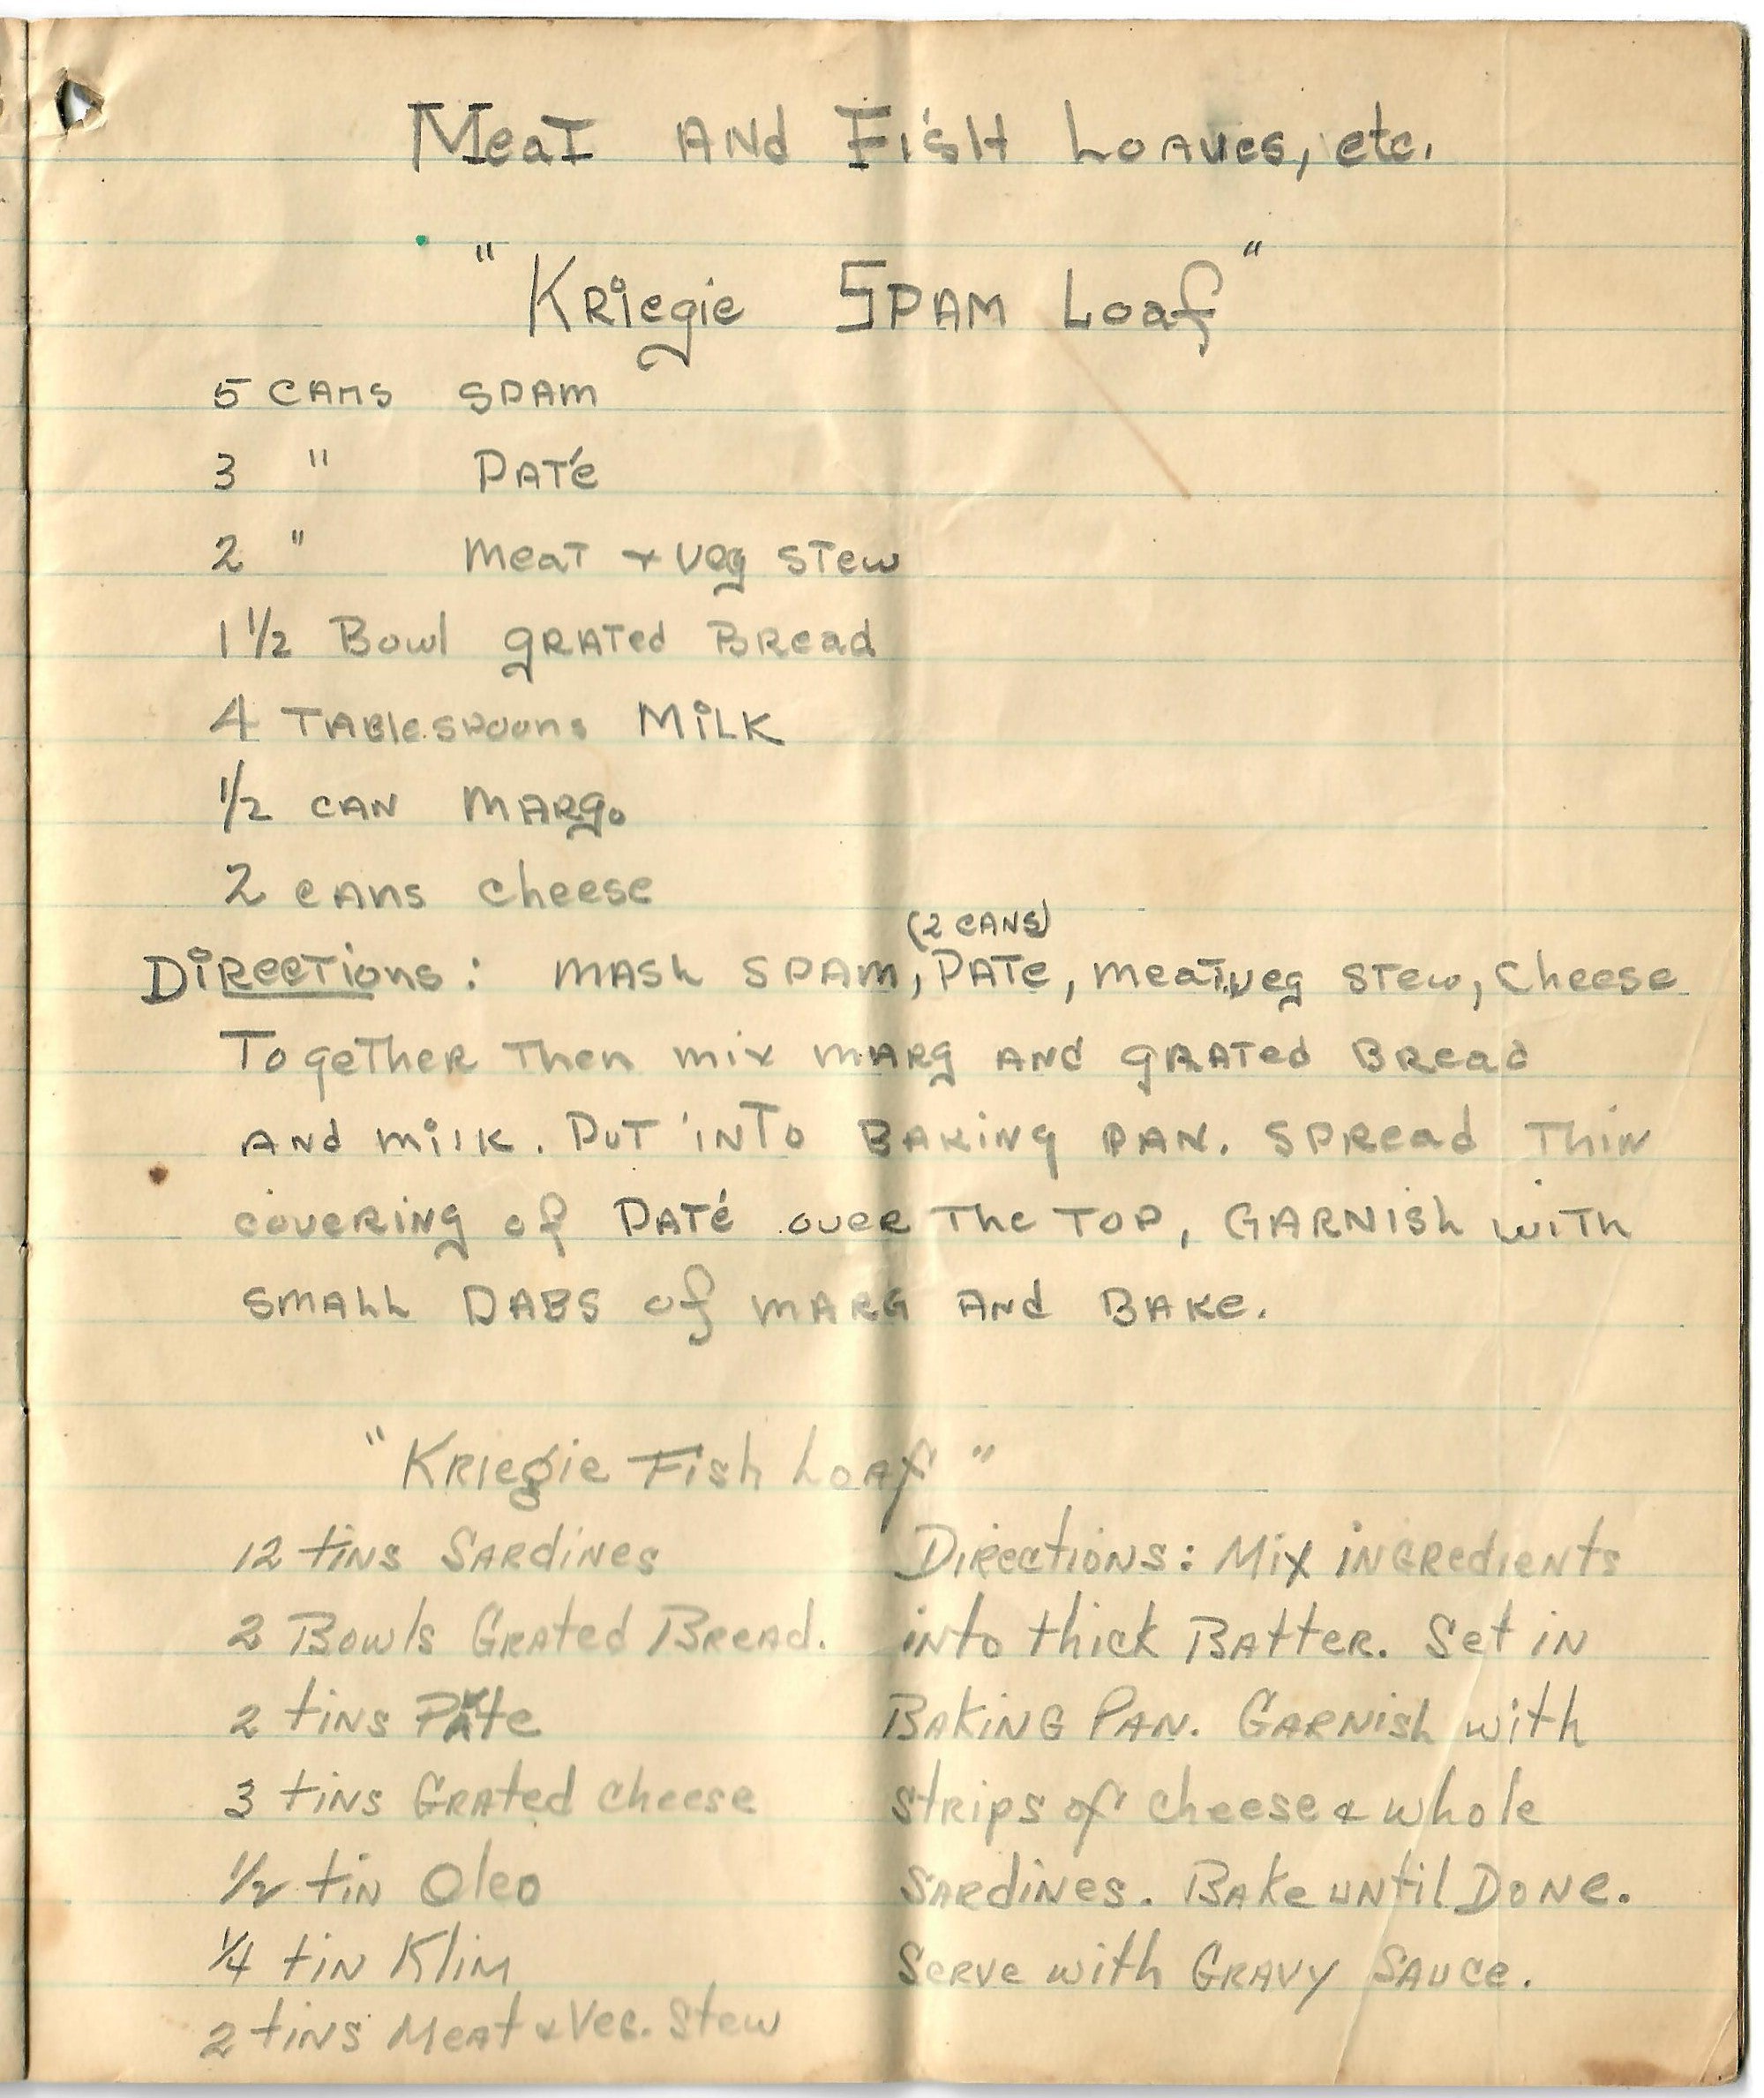 Meat and Fish Loaves, etc.
"Kriegie Spam Loaf"
5 cans Spam
3 " Paté
2 " Meat + Veg Stew
1 1/2 Bowl grated Bread
4 Tablespoons Milk
1/2 can Marg.
2 cans cheese
(2 cans)
Directions: Mash Spam, Pate, meat, veg stew, Cheese
Together Then mix marg and grated Bread
and milk. Put into Baking pan. Spread Thin
covering of Paté over the top, Garnish with
small dabs of marg and Bake.
"Kriegie Fish Loaf"
12 tins Sardines
2 Bowls Grated Bread.
2 tins Pate
3 tins Grated cheese
1/2 tin Oleo
1/4 tin Klim
2 tins Meat & Veg. Stew
Directions: Mix ingredients
into thick Batter. Set in
Baking Pan. Garnish with
strips of cheese & whole
sardines. Bake until Done.
Serve with Gravy Sauce.